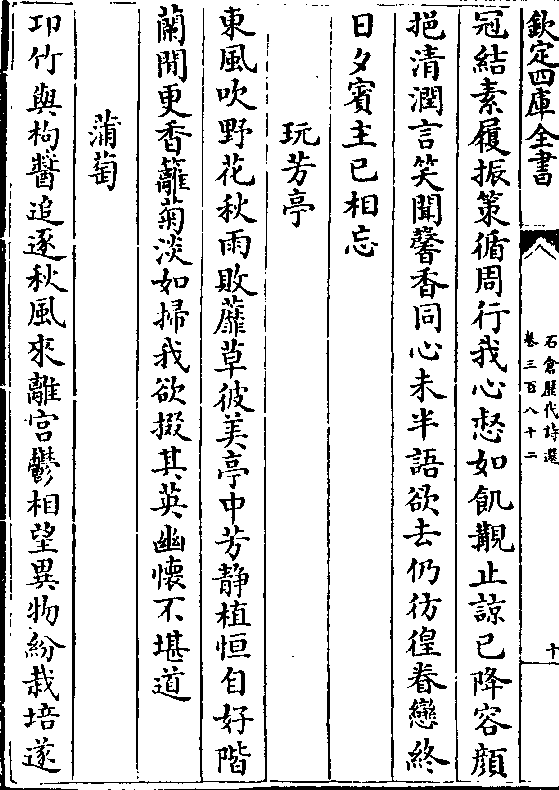 欽定四庫全書
石倉歷代詩選
卷三百八十二
十
冠結素履振策循周行我心惄如飢覯止諒已降容顔
挹清潤言笑聞馨香同心未半語欲去仍彷徨眷戀終
日夕賓主已相忘
玩芳亭
東風吹野花秋雨敗蘼草彼美亭中芳静植恒自好階
蘭閒更香籬菊淡如掃我欲掇其英幽懷不堪道
蒲萄
卭竹與枸醬追逐秋風來離宫鬱相望異物紛栽培遂